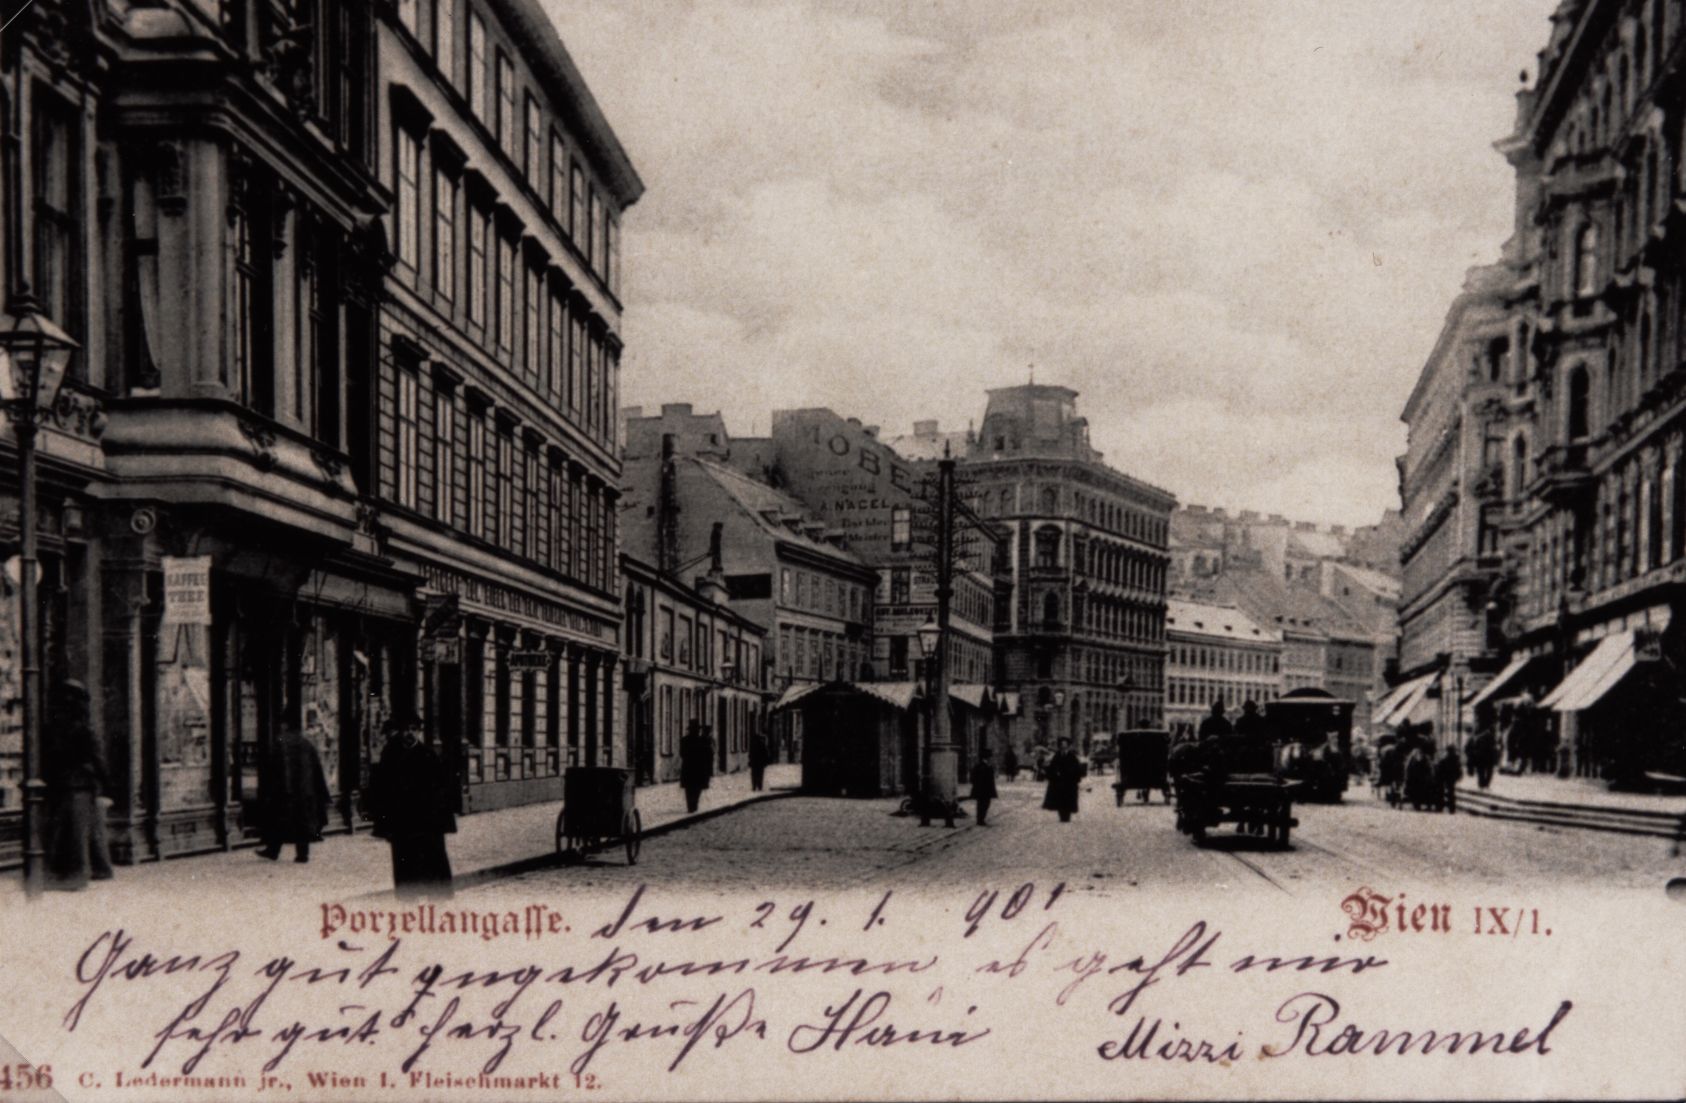 KAFFEE
THEE
APOTHEKE
MÖBEL
A. NAGEL
Porzellangasse.
Wien IX/1.
den 29. 1. 901
Ganz gut angekommen es geht mir
sehr gut. herzl. Grüße
Mizzi Rammel
456 C. Ledermann jr., Wien I. Fleischmarkt 12.